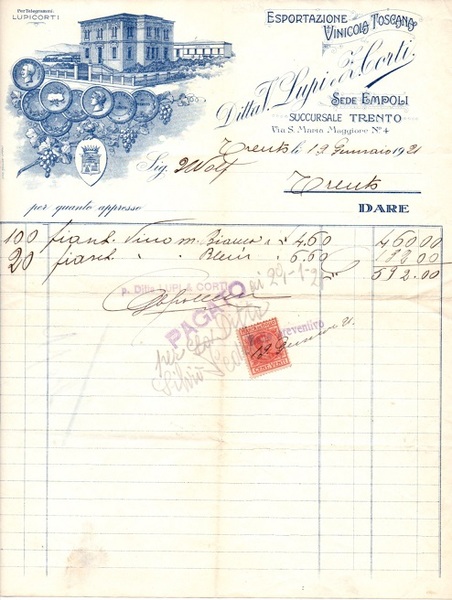 Per Telegrammi:
LUPICORTI
ESPORTAZIONE
VINICOLA TOSCANA
Ditta V. Lupi e Corti
SEDE EMPOLI
SUCCURSALE TRENTO
Via S. Maria Maggiore N° 4
Trento li 12 Gennaio 1921
Sig. Wolf
Trento
per quanto appresso
DARE
100 fiaschi Vino m. Bianco a 4.60 460.00
20 fiaschi " 6.60 132.00
592.00
p. Ditta LUPI & CORTI
29-1-21
PAGATO
per la Ditta
preventivo
12 Gennaio 21